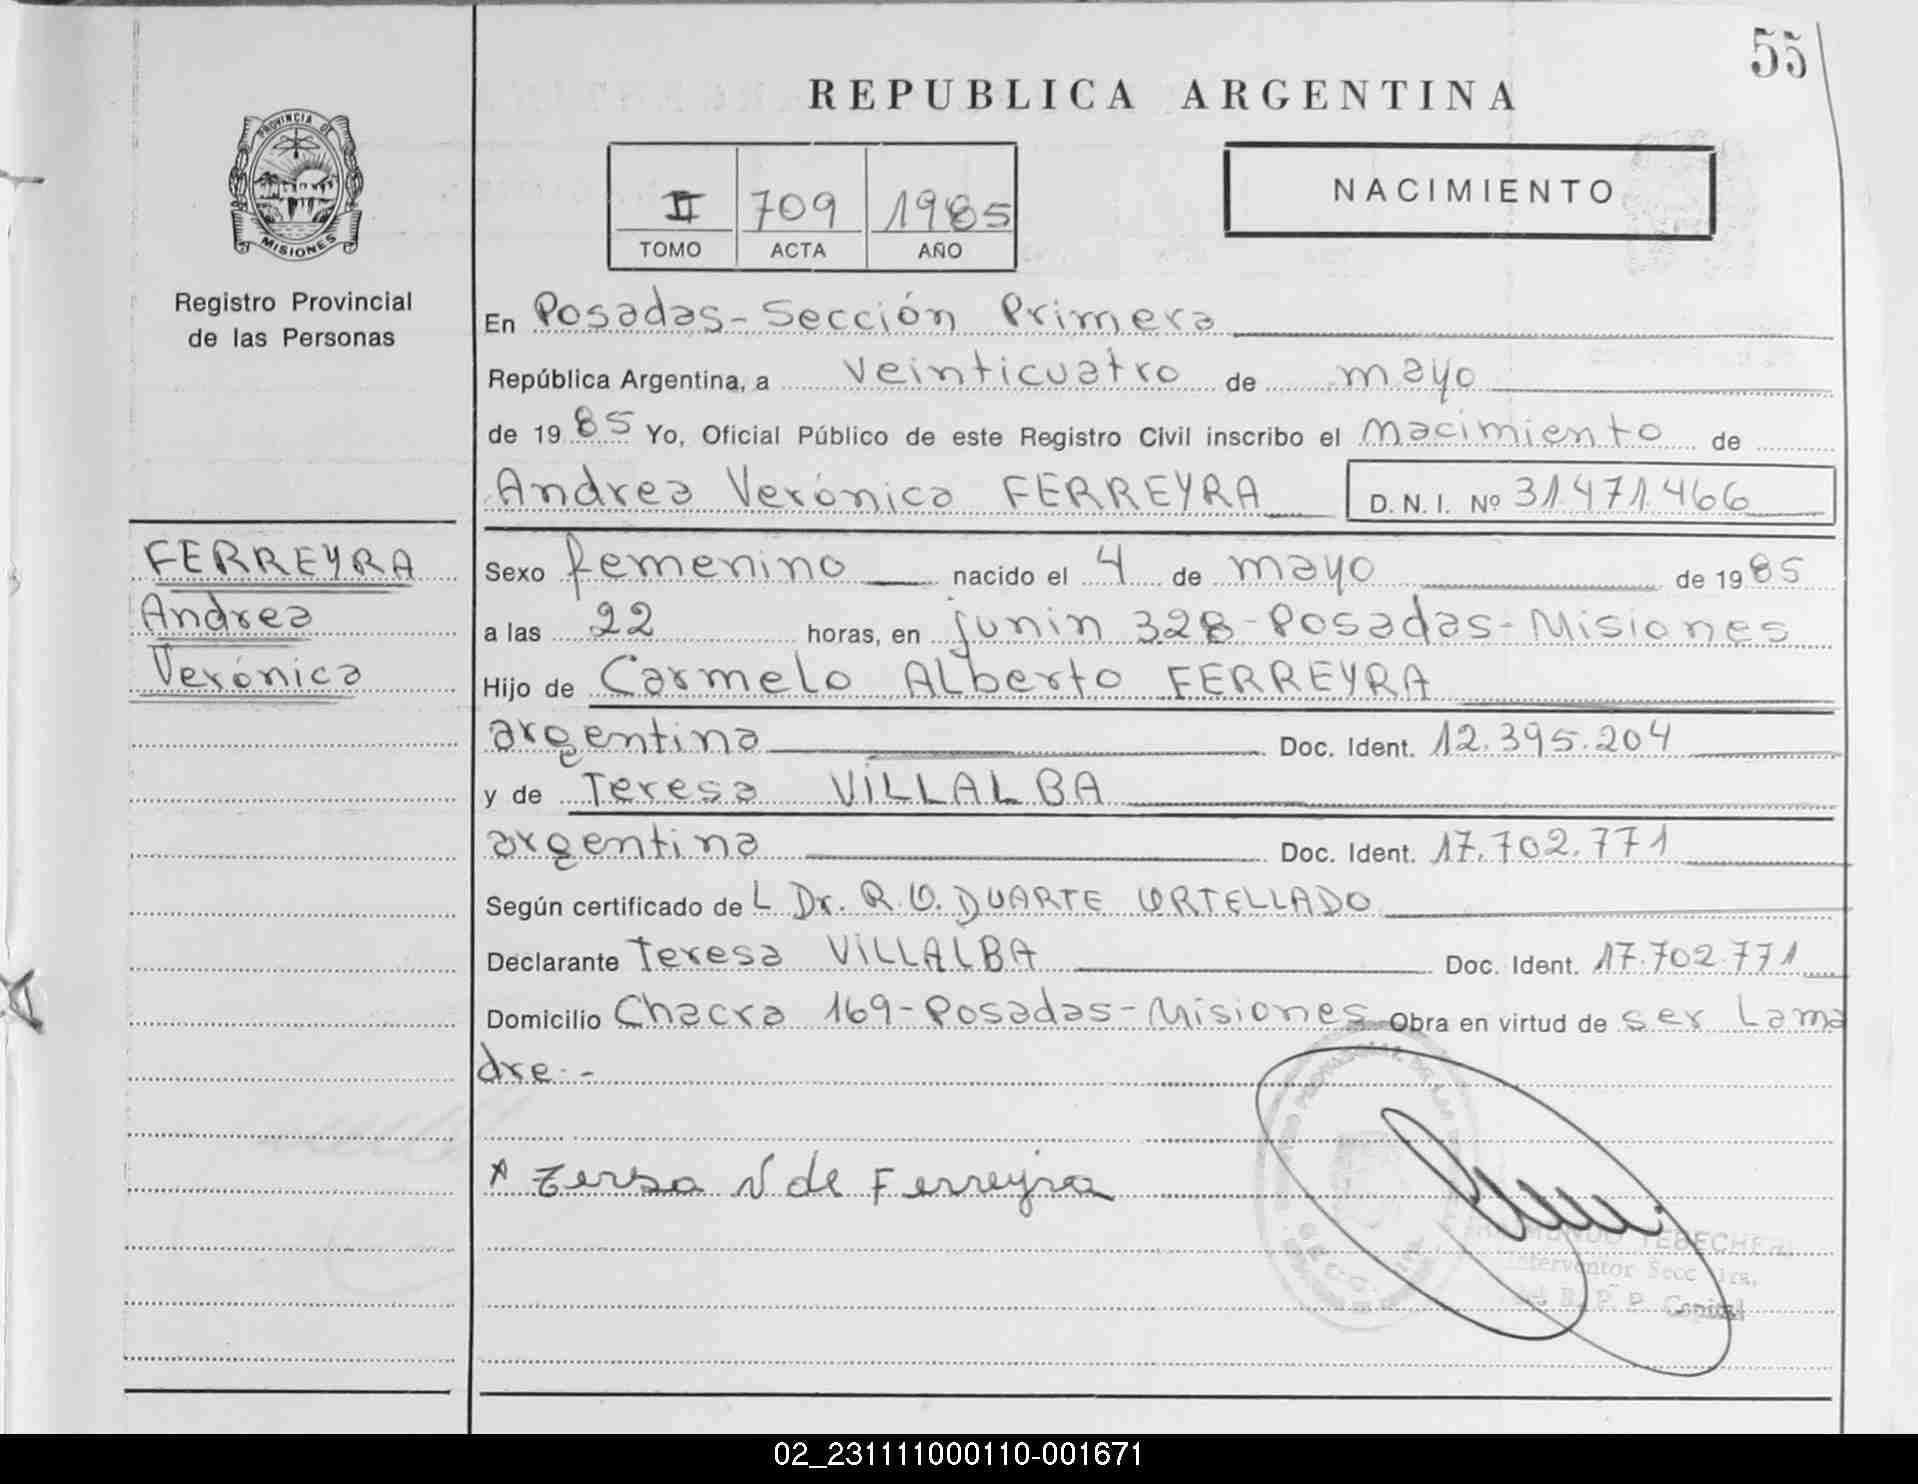 55
REPUBLICA ARGENTINA
PROVINCIA DE
MISIONES
Registro Provincial
de las Personas
II 709 1985
TOMO ACTA AÑO
NACIMIENTO
En Posadas-Sección Primera
República Argentina, a veinticuatro de mayo
de 1985 Yo, Oficial Público de este Registro Civil inscribo el nacimiento de
Andrea Verónica FERREYRA D.N.I. Nº 31.471.466
FERREYRA
Andrea
Verónica
Sexo femenino nacido el 4 de mayo de 1985
a las 22 horas, en junin 328-Posadas-Misiones
Hijo de Carmelo Alberto FERREYRA
argentina Doc. Ident. 12.395.204
y de Teresa VILLALBA
argentina Doc. Ident. 17.702.771
Según certificado de L Dr. R.O. DUARTE ORTELLADO
Declarante Teresa VILLALBA Doc. Ident. 17.702.771
Domicilio Chacra 169-Posadas-Misiones Obra en virtud de ser la ma
dre.-
Tersa V de Ferreyra
Interventor Secc 1ra.
R. P. P. Capital
02_231111000110-001671